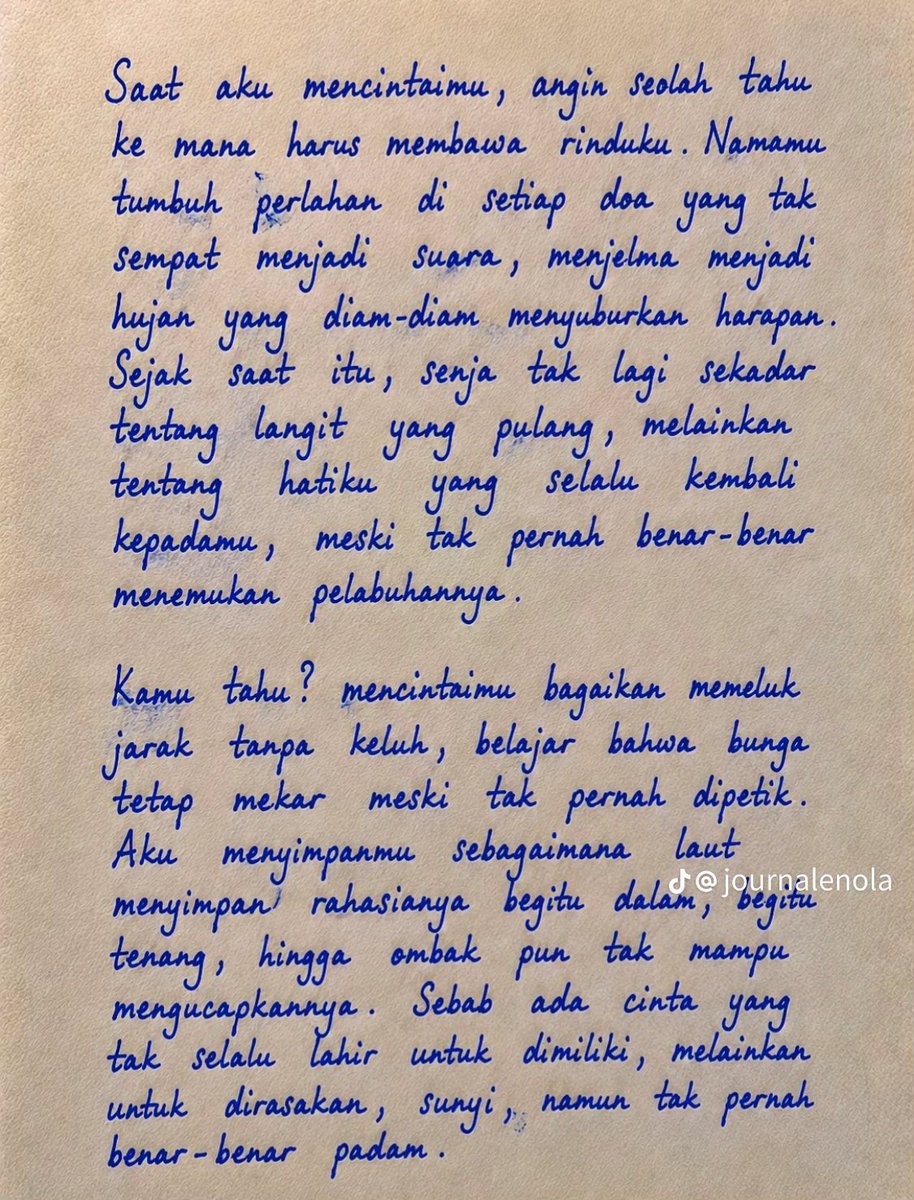 Saat aku mencintaimu, angin seolah tahu
ke mana harus membawa rinduku. Namamu
tumbuh perlahan di setiap doa yang tak
sempat menjadi suara, menjelma menjadi
hujan yang diam-diam menyuburkan harapan.
Sejak saat itu, senja tak lagi sekadar
tentang langit yang pulang, melainkan
tentang hatiku yang selalu kembali
kepadamu, meski tak pernah benar-benar
menemukan pelabuhannya.
Kamu tahu? mencintaimu bagaikan memeluk
jarak tanpa keluh, belajar bahwa bunga
tetap mekar meski tak pernah dipetik.
Aku menyimpanmu sebagaimana laut
@journalenola
menyimpan rahasianya begitu dalam, begitu
tenang, hingga ombak pun tak mampu
mengucapkannya. Sebab ada cinta yang
tak selalu lahir untuk dimiliki, melainkan
untuk dirasakan, sunyi, namun tak pernah
benar-benar padam.